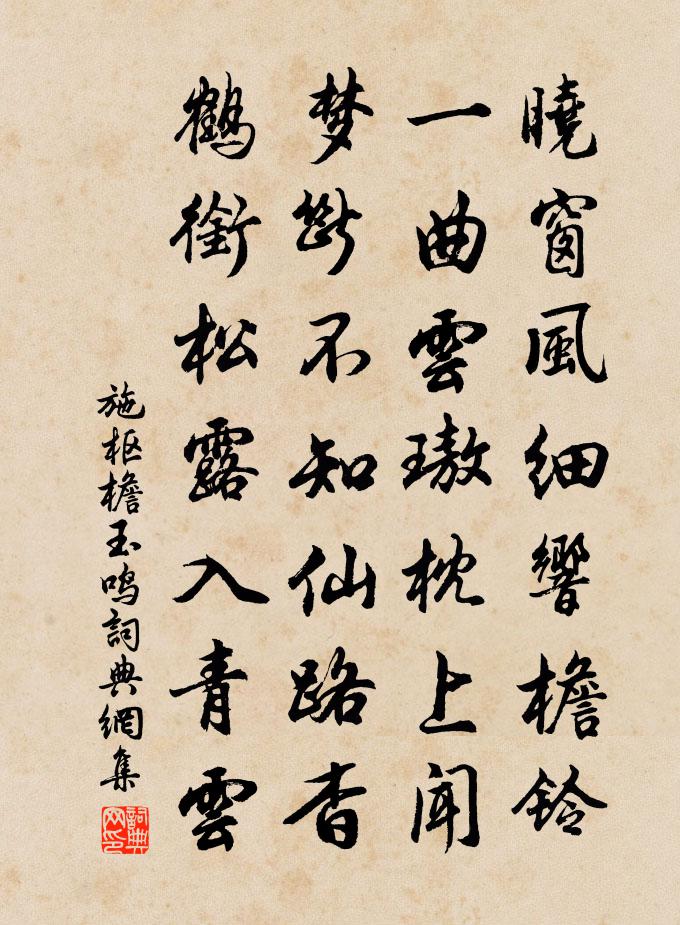 曉窗風細響檐铃
一曲雲璈枕上聞
梦斷不知仙路杳
鶴銜松露入青雲
施枢檐玉鸣詞典網集
詞典网印